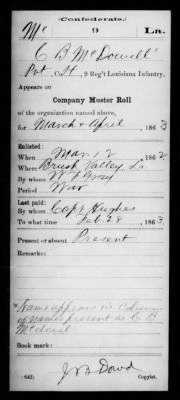 Confederate.
Mc 9 La.
C B McDowell
Pvt. , 9 Reg't Louisiana Infantry.
Appears on
Company Muster Roll
of the organization named above,
for March & April, 1863
Enlisted:
When Mar 12, 1862
Where Brush Valley, La.
By whom W. F. Gray
Period War
Last paid:
By whom Capt Hughes
To what time Feb. 28, 1863
Present or absent Present
Remarks:
Name appears in column
of names present as C B
McDowel
Book mark:
(642) Copyist.